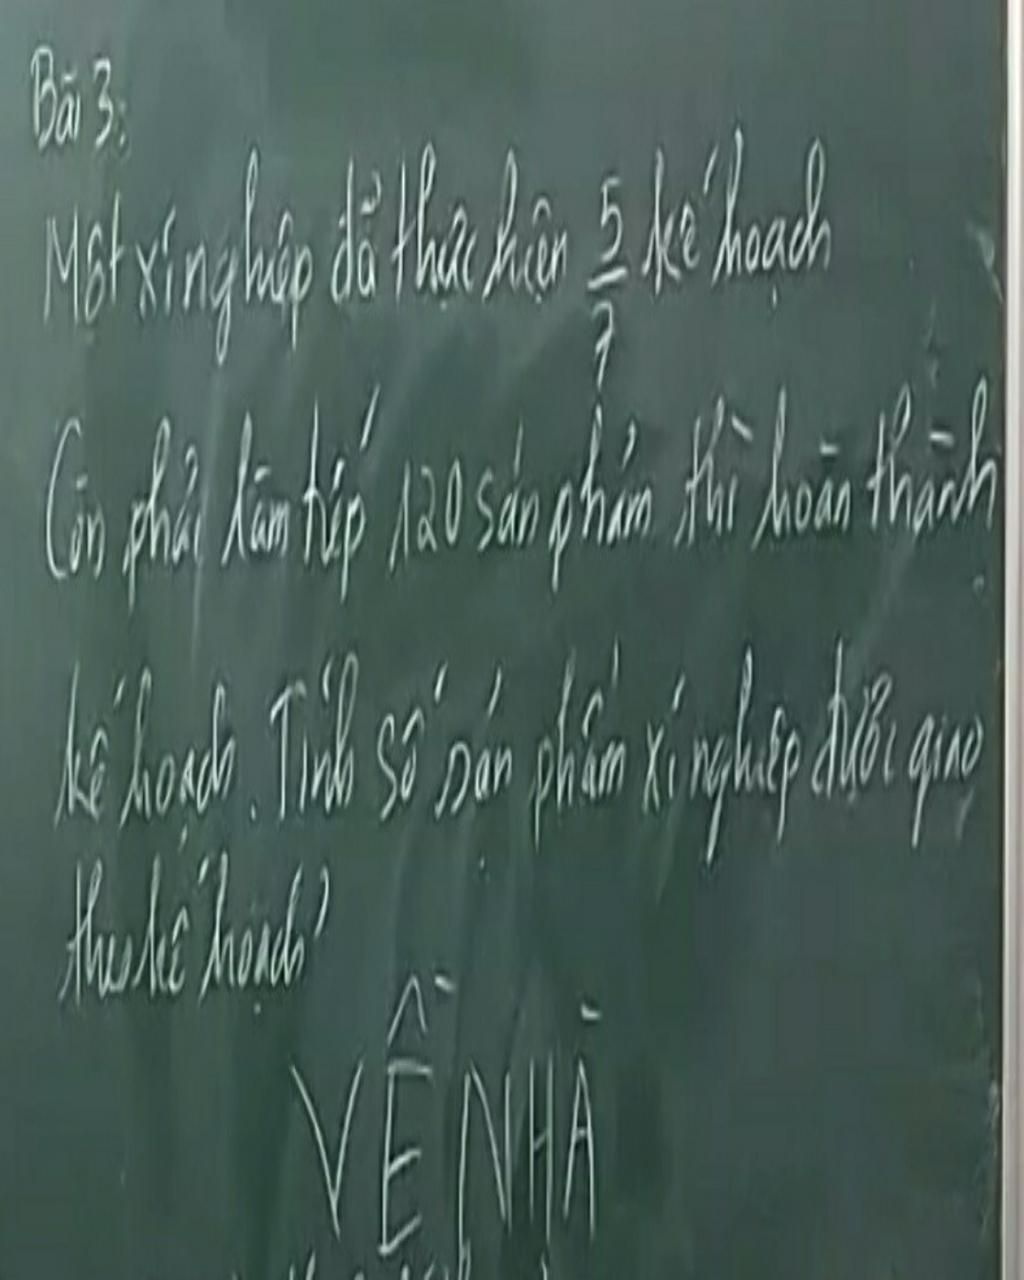 Bài 3:
Một xí nghiệp đã thực hiện 5/7 kế hoạch
Còn phải làm tiếp 120 sản phẩm thì hoàn thành
kế hoạch. Tính số sản phẩm xí nghiệp được giao
theo kế hoạch
VỀ NHÀ